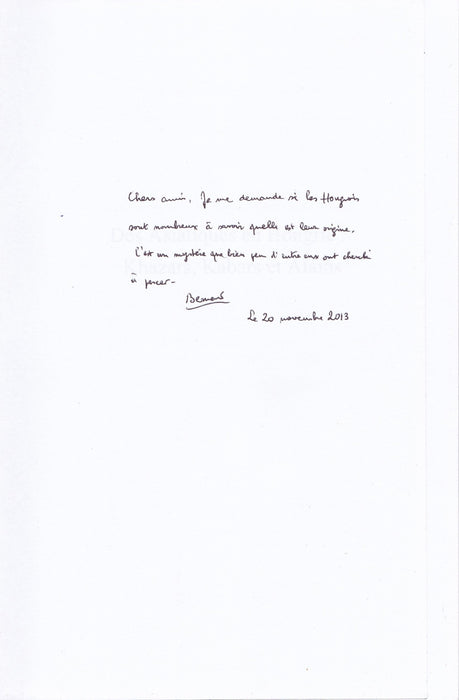 Chers amis, Je me demande si les Hongrois
sont nombreux à savoir quelle est leur origine.
C'est un mystère que bien peu d'entre eux ont cherché
à percer -
Bernard
Le 20 novembre 2013